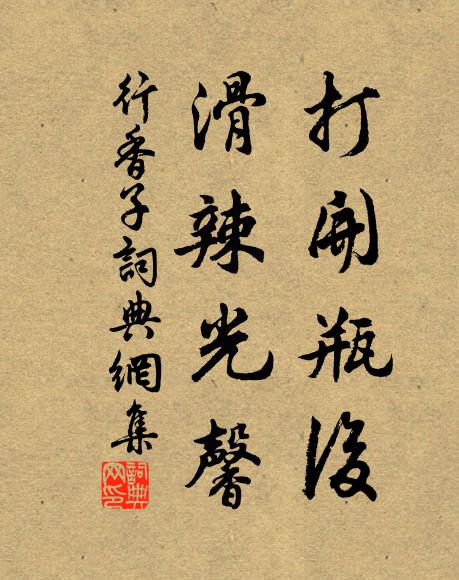 打開瓶後
滑辣光馨
行香子詞典網集
詞典網印